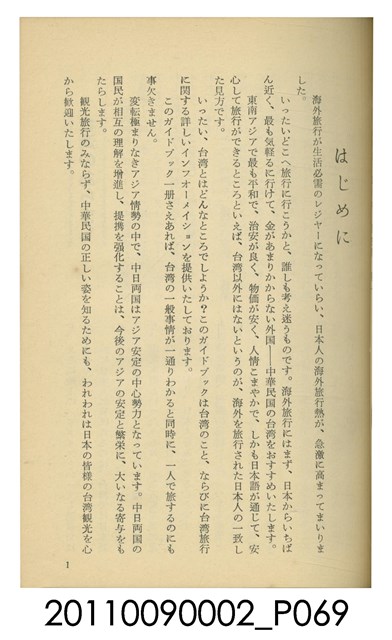 はじめに
海外旅行が生活必需のレジャーになっていらい、日本人の海外旅行熱が、急激に高まってまいりま
した。
いったいどこへ旅行に行こうかと、誰しも考え迷うものです。海外旅行にはまず、日本からいちば
ん近く、最も気軽るに行けて、金があまりかからない外国——中華民国の台湾をおすすめいたします。
東南アジアで最も平和で、治安が良く、物価が安く、人情こまやかで、しかも日本語が通じて、安
心して旅行ができるところといえば、台湾以外にはないというのが、海外を旅行された日本人の一致し
た見方です。
いったい、台湾とはどんなところでしようか？このガイドブックは台湾のこと、ならびに台湾旅行
に関する詳しいインフオーメイションを提供いたしております。
このガイドブック一册さえあれば、台湾の一般事情が一通りわかると同時に、一人で旅するのにも
事欠きません。
変転極まりなきアジア情勢の中で、中日両国はアジア安定の中心勢力となっています。中日両国の
国民が相互の理解を増進し、提携を強化することは、今後のアジアの安定と繁栄に、大いなる寄与をも
たらします。
観光旅行のみならず、中華民国の正しい姿を知るためにも、われわれは日本の皆様の台湾観光を心
から歓迎いたします。
1
20110090002_P069